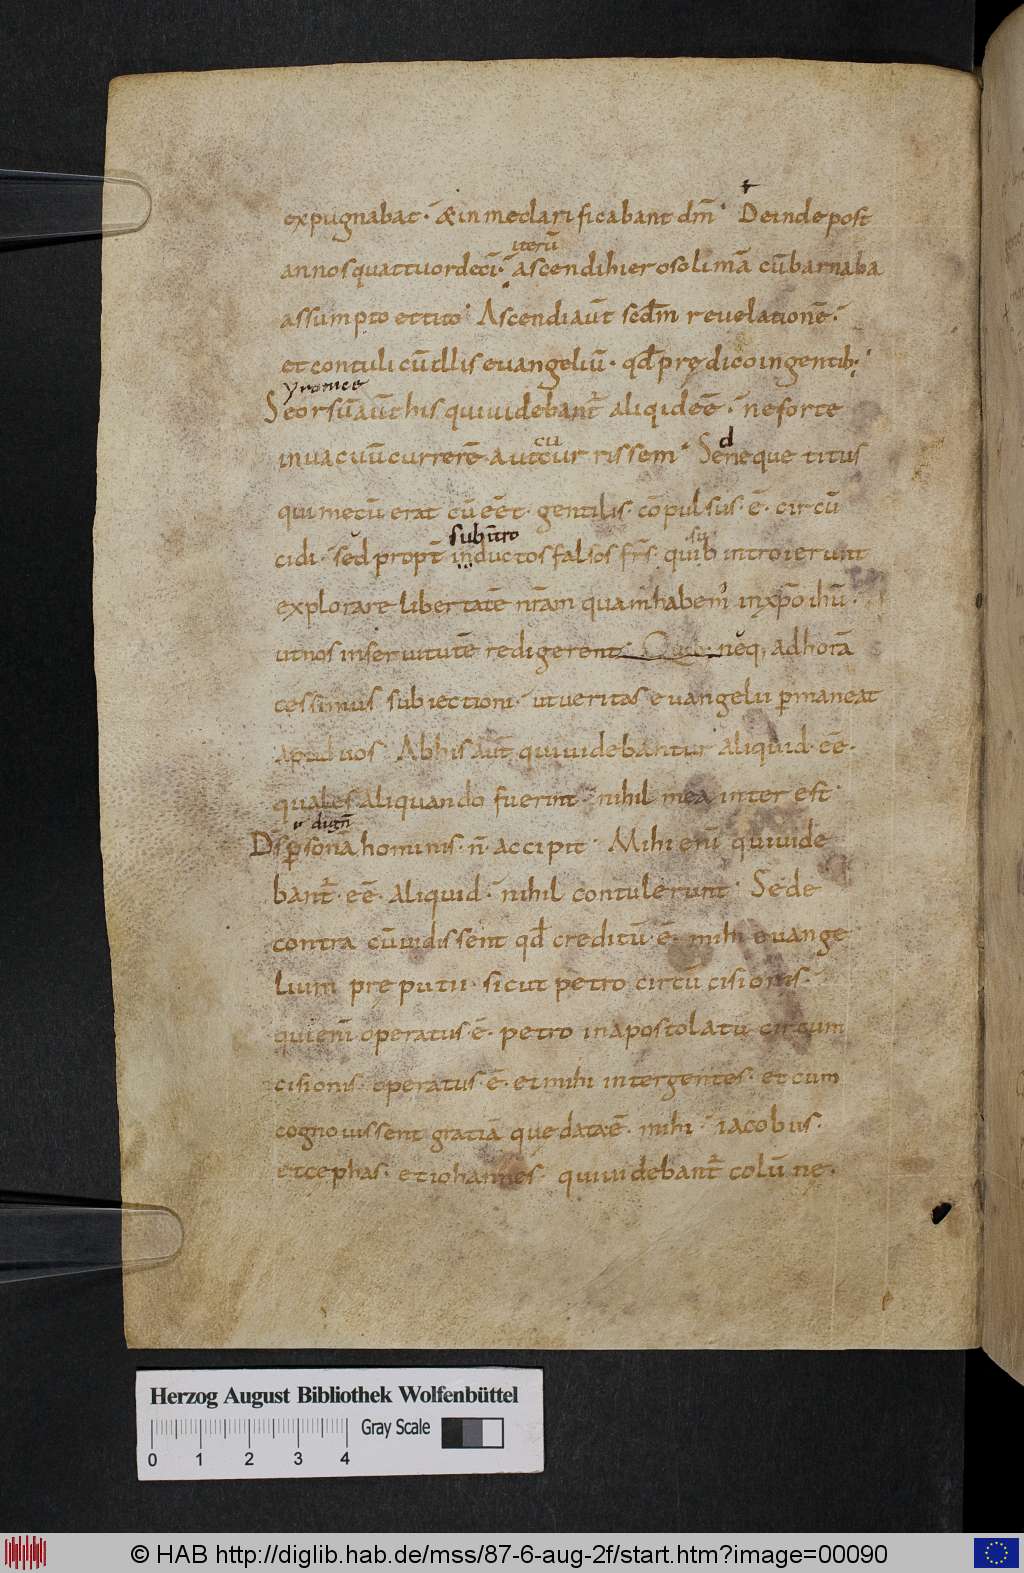 expugnabat · & in me clarificabant dm̄ · Deinde post
iterū
annos quattuordeci · ascendi hierosolimā cū barnaba
assumpto et tito · Ascendi aūt scdm̄ revelationē ·
et contuli cū illis evangeliū · qd̄ prędico in gentib ·
Seorsū aūt his qui videbant̄ aliqid eē · ne forte
cu
in vacuū currerē aut cur rissem · Se neque titus
d
qui mecū erat cū eēt · gentilis · cōpulsus · ē · circū
subītro
su
cidi · sed propt̄ inductos falsos frs̄ · qui b introierunt
explorare libertatē nr̄am quam habem' in xp̄o ihū ·
ut nos in servitutē redigerent · Quib · neq; ad horā
cessimus subiectioni · ut veritas evangelii pmaneat
apud vos · Ab his aūt qui videbantur aliquid · eē ·
quales aliquando fuerint · nihil mea interest ·
dign̄
Ds̄ psonā hominis · n̄ · accipit · Mihi enī qui vide
bant̄ · eē · aliquid · nihil contulerunt · Sed e
contra cū vidissent qd̄ creditū · ē · mihi evange
lium prę putii · sicut petro circū cisionis ·
qui enī operatus · ē · petro in apostolatū circum
cisionis · operatus · ē · et mihi inter gentes · et cum
cognovissent gratiā que data ē · mihi · iacobus ·
et cephas · et iohannes · qui videbant̄ colūne ·
Herzog August Bibliothek Wolfenbüttel
Gray Scale
0 1 2 3 4
© HAB http://diglib.hab.de/mss/87-6-aug-2f/start.htm?image=00090